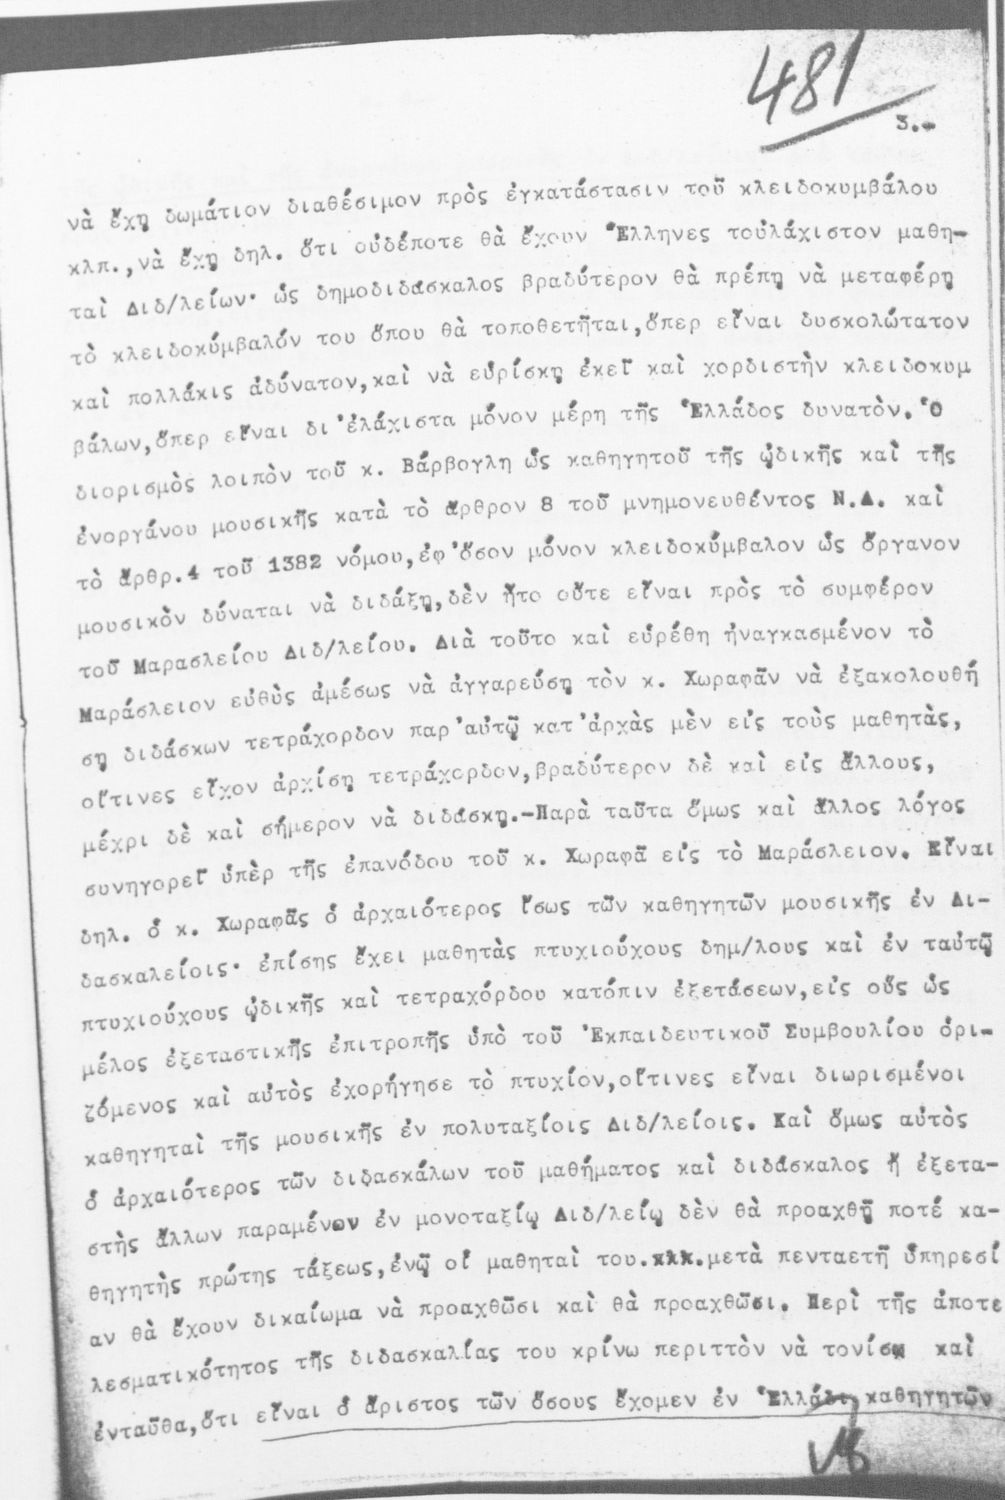 481
3.-
νὰ ἔχῃ δωμάτιον διαθέσιμον πρὸς ἐγκατάστασιν τοῦ κλειδοκυμβάλου
κλπ.,νὰ ἔχῃ δηλ. ὅτι οὐδέποτε θὰ ἔχουν Ἕλληνες τοὐλάχιστον μαθη-
ταὶ Διδ/λείων· ὡς δημοδιδάσκαλος βραδύτερον θὰ πρέπῃ νὰ μεταφέρῃ
τὸ κλειδοκύμβαλόν του ὅπου θὰ τοποθετῆται,ὅπερ εἶναι δυσκολώτατον
καὶ πολλάκις ἀδύνατον,καὶ νὰ εὑρίσκῃ ἐκεῖ καὶ χορδιστὴν κλειδοκυμ
βάλων,ὅπερ εἶναι δι'ἐλάχιστα μόνον μέρη τῆς Ἑλλάδος δυνατὸν. Ὁ
διορισμὸς λοιπὸν τοῦ κ. Βάρβογλη ὡς καθηγητοῦ τῆς ᾠδικῆς καὶ τῆς
ἐνοργάνου μουσικῆς κατὰ τὸ ἄρθρον 8 τοῦ μνημονευθέντος Ν.Δ. καὶ
τὸ ἄρθρ.4 τοῦ 1382 νόμου,ἐφ'ὅσον μόνον κλειδοκύμβαλον ὡς ὄργανον
μουσικὸν δύναται νὰ διδάξῃ,δὲν ἦτο οὔτε εἶναι πρὸς τὸ συμφέρον
τοῦ Μαρασλείου Διδ/λείου. Διὰ τοῦτο καὶ εὑρέθη ἠναγκασμένον τὸ
Μαράσλειον εὐθὺς ἀμέσως νὰ ἀγγαρεύσῃ τὸν κ. Χωραφᾶν νὰ ἐξακολουθή
σῃ διδάσκων τετράχορδον παρ'αὐτῷ κατ'ἀρχὰς μὲν εἰς τοὺς μαθητὰς,
οἵτινες εἶχον ἀρχίσῃ τετράχορδον,βραδύτερον δὲ καὶ εἰς ἄλλους,
μέχρι δὲ καὶ σήμερον νὰ διδάσκῃ.-Παρὰ ταῦτα ὅμως καὶ ἄλλος λόγος
συνηγορεῖ ὑπὲρ τῆς ἐπανόδου τοῦ κ. Χωραφᾶ εἰς τὸ Μαράσλειον. Εἶναι
δηλ. ὁ κ. Χωραφᾶς ὁ ἀρχαιότερος ἴσως τῶν καθηγητῶν μουσικῆς ἐν Δι-
δασκαλείοις· ἐπίσης ἔχει μαθητὰς πτυχιούχους δημ/λους καὶ ἐν ταὐτῷ
πτυχιούχους ᾠδικῆς καὶ τετραχόρδου κατόπιν ἐξετάσεων,εἰς οὓς ὡς
μέλος ἐξεταστικῆς ἐπιτροπῆς ὑπὸ τοῦ Ἐκπαιδευτικοῦ Συμβουλίου ὁρι-
ζόμενος καὶ αὐτὸς ἐχορήγησε τὸ πτυχίον,οἵτινες εἶναι διωρισμένοι
καθηγηταὶ τῆς μουσικῆς ἐν πολυταξίοις Διδ/λείοις. Καὶ ὅμως αὐτὸς
ὁ ἀρχαιότερος τῶν διδασκάλων τοῦ μαθήματος καὶ διδάσκαλος ἢ ἐξετα-
στὴς ἄλλων παραμένων ἐν μονοταξίῳ Διδ/λείῳ δὲν θὰ προαχθῇ ποτέ κα-
θηγητὴς πρώτης τάξεως,ἐνῷ οἱ μαθηταὶ του.κλκ.μετὰ πενταετῆ ὑπηρεσί
αν θὰ ἔχουν δικαίωμα νὰ προαχθῶσι καὶ θὰ προαχθῶσι. Περὶ τῆς ἀποτε
λεσματικότητος τῆς διδασκαλίας του κρίνω περιττὸν νὰ τονίσω καὶ
ἐνταῦθα,ὅτι εἶναι ὁ ἄριστος τῶν ὅσους ἔχομεν ἐν Ἑλλάδι καθηγητῶν